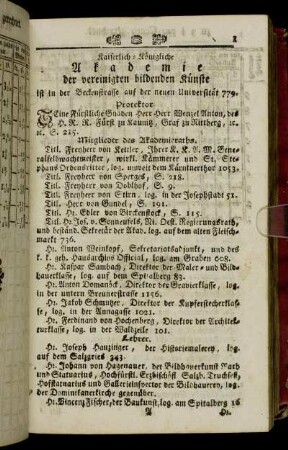 1
Kaiserlich-Königliche
Akademie
der vereinigten bildenden Künste
ist in der Beckenstrasse auf der neuen Universität 779.
Protektor.
Seine Fürstliche Gnaden Herr Herr Wenzel Anton, des
H. R. R. Fürst zu Kaunitz, Graf zu Rittberg, ꝛc.
ꝛc. S. 215.
Mitglieder des Akademieraths.
Titl. Freyherr von Kettler, Ihrer K. K. A. M. Gene-
ralfeldwachtmeister, wirkl. Kämmerer und St. Ste-
phans Ordensritter, log. unweit dem Kärntnerthor 1053.
Titl. Freyherr von Sperges, S. 218.
Titl. Freyherr von Doblhof, S. 9.
Titl. Freyherr von log. in der Josephstadt 51.
Titl. Herr von Gundel, S. 191.
Titl. Hr. Edler von Birckenstock, S. 115.
Titl. Hr. Jos. v. Sonnenfels, Ni. Oest. Regierungsrath,
und beständ. Sekretär der Akad. log. auf dem alten Fleisch-
markt 736.
Hr. Anton Weinkopf, Sekretariatsadjunkt, und des
k. k. geh. Hausarchivs Official, log. am Graben 608.
Hr. Kaspar Sambach, Direktor der Maler- und Bild-
hauerklasse, log. auf dem Spitelberg 83.
Hr. Anton Domanöck, Direktor der Gravierklasse, log.
in der untern Breunerstrasse 1156.
Hr. Jakob Schmutzer, Direktor der Kupferstecherklas-
se, log. in der Annagasse 1021.
Hr. Ferdinand von Hochenberg, Direktor der Architek-
turklasse, log. in der Walzeile 101.
Lehrer.
Hr. Joseph Hauzinger, der Historienmalerey, log.
auf dem Salzgries 343.
Hr. Johann von Hagenauer, der Bildhauerkunst Rath
und Statuarius, Hochfürstl. Erzbischöfl. Salzb. Truchseß,
Hofstatuarius und Gallerieinspector der Bildhauerey, log.
der Dominikanerkirche gegenüber.
Hr. Vincenz Fischer, der Baukunst, log. am Spitalberg 16
A
Hr.